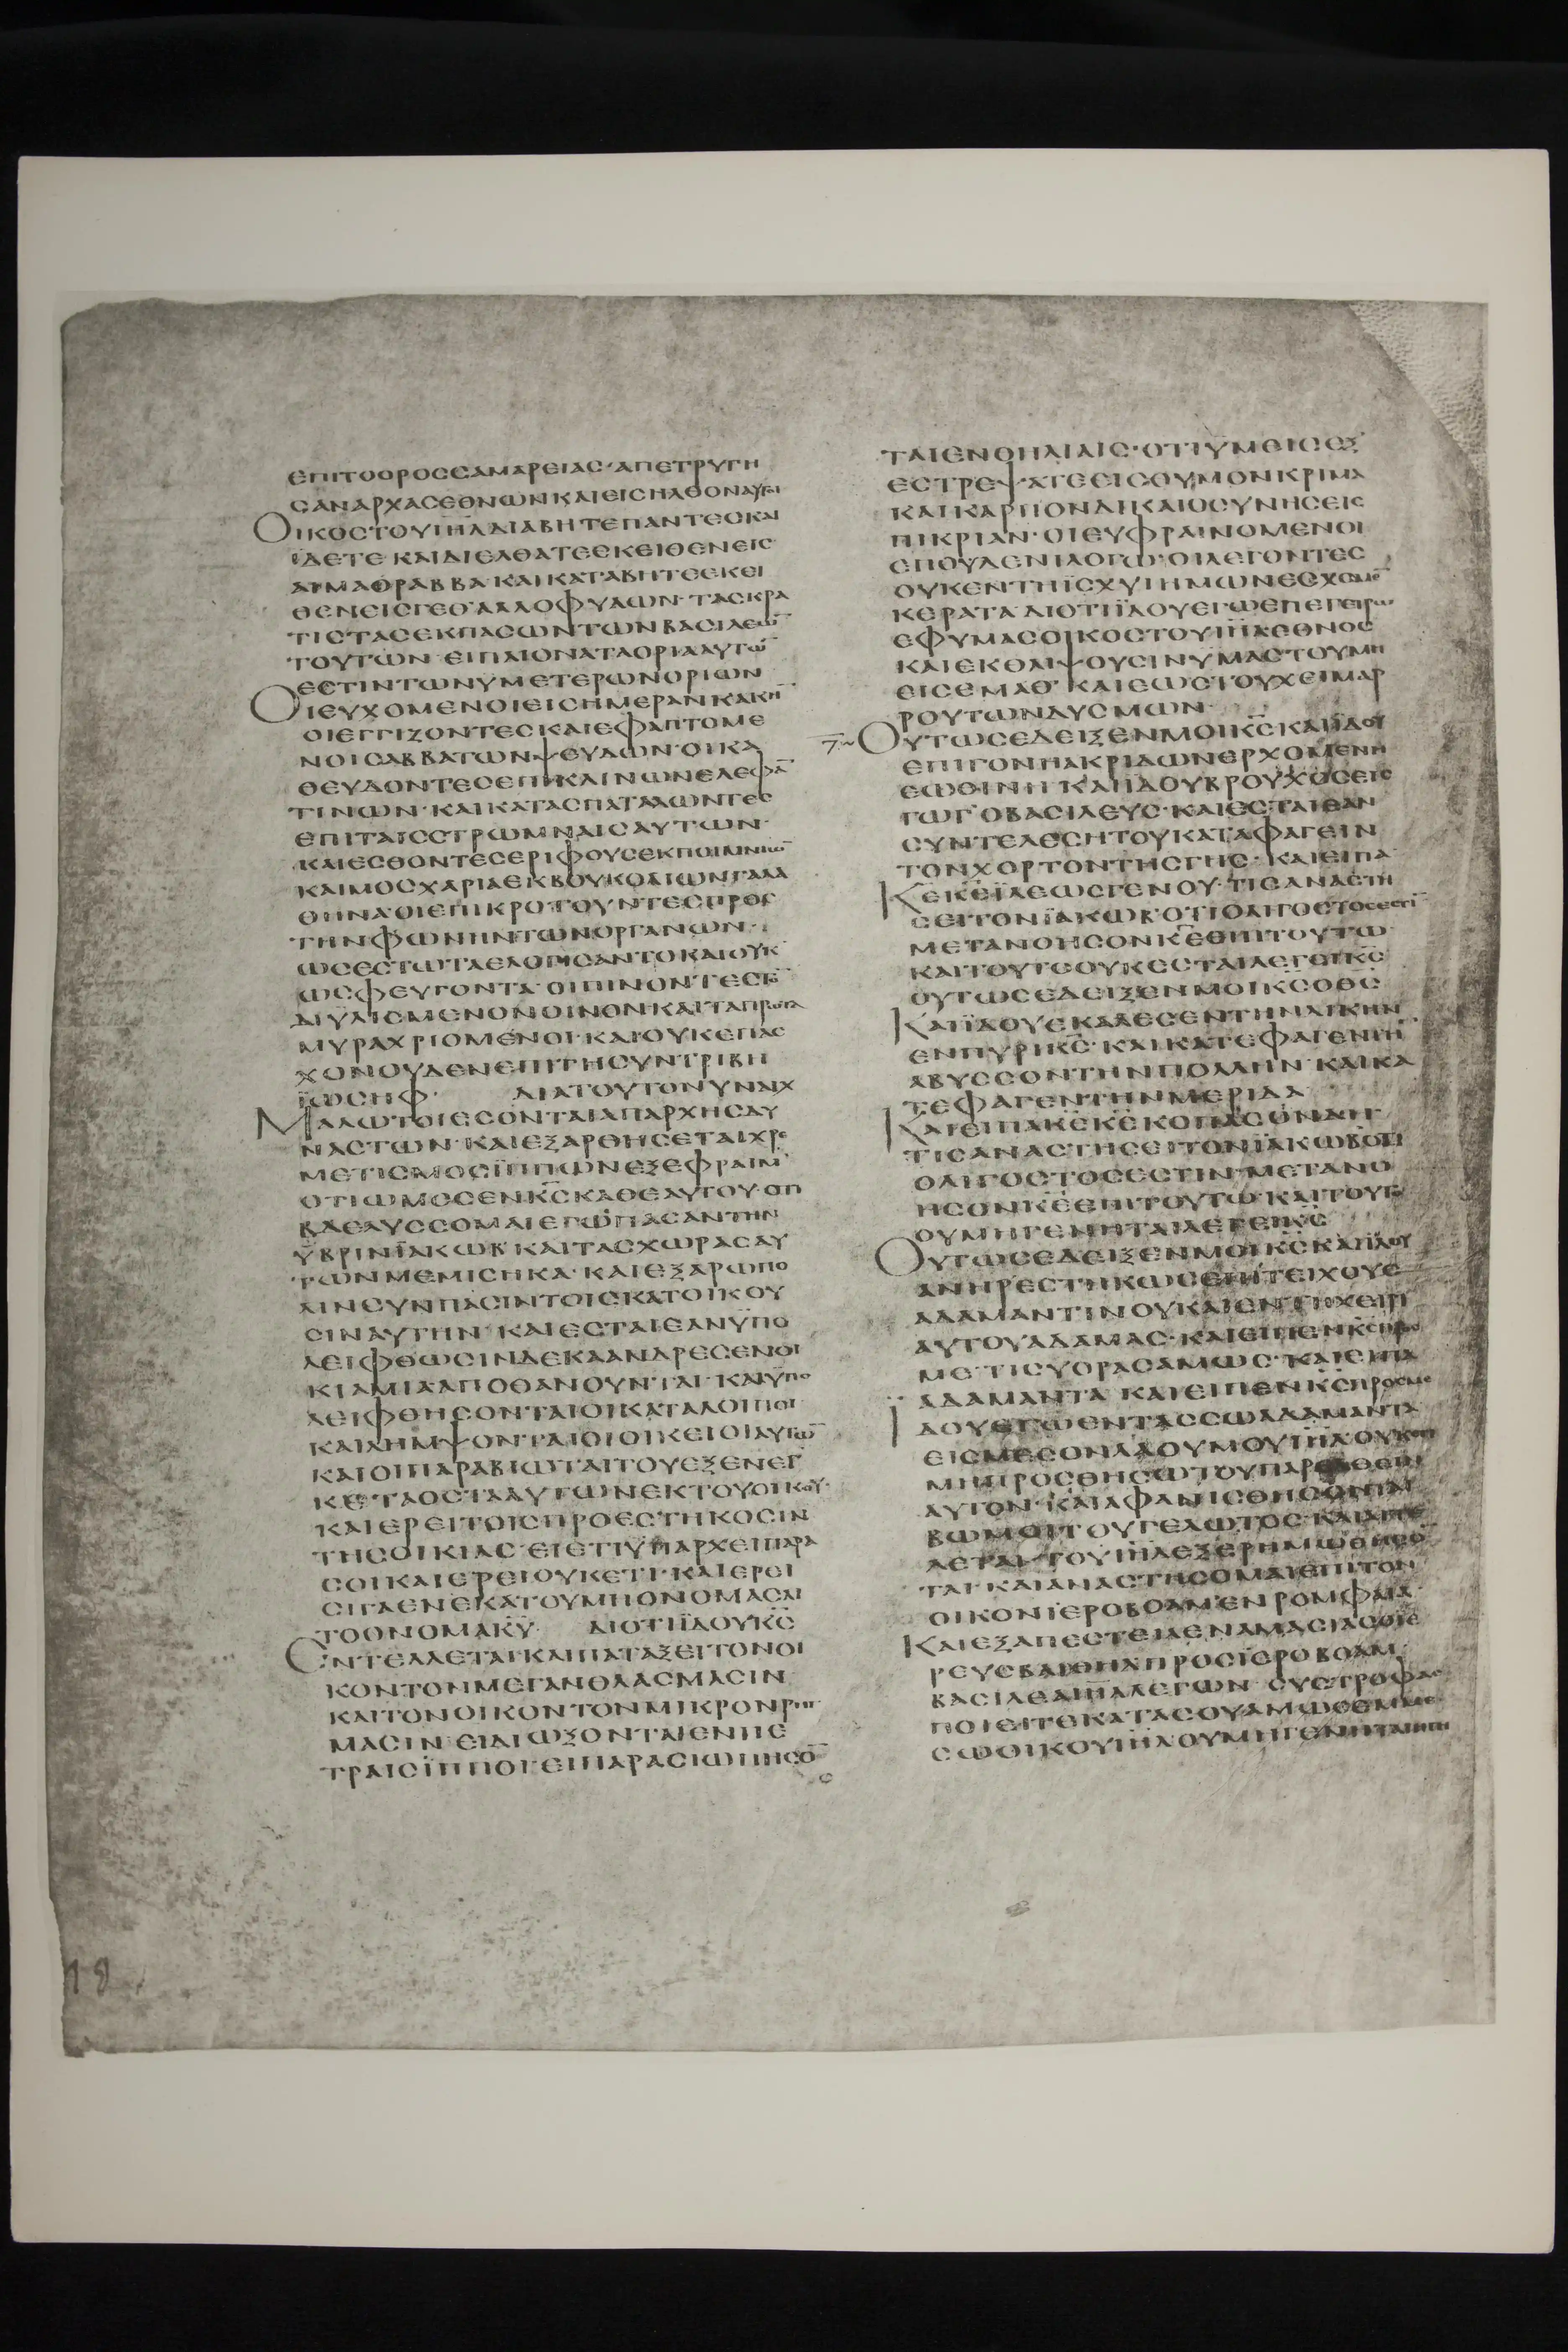 ΕΠΙΤΟΟΡΟΣΣΑΜΑΡΕΙΑΣ·ΑΠΕΤΡΥΓΗ
ΣΑΝΑΡΧΑΣΕΘΝΩΝΚΑΙΕΙΣΗΛΘΟΝΑΥΤΟΙ
ΟΙΚΟΣΤΟΥΙΗΛΔΙΑΒΗΤΕΠΑΝΤΕΣΚΑΙ
ΪΔΕΤΕ ΚΑΙΔΙΕΛΘΑΤΕΕΚΕΙΘΕΝΕΙΣ
ΑΙΜΑΘΡΑΒΒΑ·ΚΑΙΚΑΤΑΒΗΤΕΕΚΕΙ
ΘΕΝΕΙΣΓΕΘ ΑΛΛΟΦΥΛΩΝ·ΤΑΣΚΡΑ
ΤΙΣΤΑΣΕΚΠΑΣΩΝΤΩΝΒΑΣΙΛΕΙΩ̅
ΤΟΥΤΩΝ ΕΙΠΛΙΟΝΑΤΑΟΡΙΑΑΥΤΩ̅
ΕΣΤΙΝΤΩΝΥΜΕΤΕΡΩΝΟΡΙΩΝ
ΟΙΕΥΧΟΜΕΝΟΙΕΙΣΗΜΕΡΑΝΚΑΚΗ̅
ΟΙΕΓΓΙΖΟΝΤΕΣΚΑΙΕΦΑΠΤΟΜΕ
ΝΟΙΣΑΒΒΑΤΩΝΨΕΥΔΩΝ·ΟΙΚΑ
ΘΕΥΔΟΝΤΕΣΕΠΙΚΛΙΝΩΝΕΛΕΦΑ̅
ΤΙΝΩΝ·ΚΑΙΚΑΤΑΣΠΑΤΑΛΩΝΤΕΣ
ΕΠΙΤΑΙΣΣΤΡΩΜΝΑΙΣΑΥΤΩΝ·
ΚΑΙΕΣΘΟΝΤΕΣΕΡΙΦΟΥΣΕΚΠΟΙΜΝΙΩ̅
ΚΑΙΜΟΣΧΑΡΙΑΕΚΒΟΥΚΟΛΙΩΝΓΑΛΑ
ΘΗΝΑ·ΟΙΕΠΙΚΡΟΤΟΥΝΤΕΣΠΡΟΣ
ΤΗΝΦΩΝΗΝΤΩΝΟΡΓΑΝΩΝ·
ΩΣΕΣΤΩΤΑΕΛΟΓΙΣΑΝΤΟΚΑΙΟΥΚ
ΩΣΦΕΥΓΟΝΤΑ·ΟΙΠΙΝΟΝΤΕΣΤΟ̅
ΔΙΥΛΙΣΜΕΝΟΝΟΙΝΟΝΚΑΙΤΑΠΡΩΤΑ
ΜΥΡΑΧΡΙΟΜΕΝΟΙ·ΚΑΙΟΥΚΕΠΑΣ
ΧΟΝΟΥΔΕΝΕΠΙΤΗΣΥΝΤΡΙΒΗ
ΪΩΣΗΦ· ΔΙΑΤΟΥΤΟΝΥΝΑΙΧ
ΜΑΛΩΤΟΙΕΣΟΝΤΑΙΑΠΑΡΧΗΣΔΥ
ΝΑΣΤΩΝ·ΚΑΙΕΞΑΡΘΗΣΕΤΑΙΧΡΕ
ΜΕΤΙΣΜΟΣΪΠΠΩΝΕΞΕΦΡΑΙΜ·
ΟΤΙΩΜΟΣΕΝΚ̅Σ̅ΚΑΘΕΑΥΤΟΥ·ΟΤΙ
ΒΔΕΛΥΣΣΟΜΑΙΕΓΩΠΑΣΑΝΤΗΝ
ΫΒΡΙΝΪΑΚΩΒ·ΚΑΙΤΑΣΧΩΡΑΣΑΥ
ΤΩΝΜΕΜΙΣΗΚΑ·ΚΑΙΕΞΑΡΩΠΟ
ΛΙΝΣΥΝΠΑΣΙΝΤΟΙΣΚΑΤΟΙΚΟΥ
ΣΙΝΑΥΤΗΝ·ΚΑΙΕΣΤΑΙΕΑΝΫΠΟ
ΛΕΙΦΘΩΣΙΝΔΕΚΑΑΝΔΡΕΣΕΝΟΙ
ΚΙΑΜΙΑΑΠΟΘΑΝΟΥΝΤΑΙ·ΚΑΙΫΠΟ
ΛΕΙΦΘΗΣΟΝΤΑΙΟΙΚΑΤΑΛΟΙΠΟΙ·
ΚΑΙΛΗΜΨΟΝΤΑΙΟΙΟΙΚΕΙΟΙΑΥΤΩ̅
ΚΑΙΟΙΠΑΡΑΒΙΩΤΑΙΤΟΥΕΞΕΝΕΓ
ΚΕ·ΤΑΟΣΤΑΑΥΤΩΝΕΚΤΟΥΟΙΚΟΥ·
ΚΑΙΕΡΕΙΤΟΙΣΠΡΟΕΣΤΗΚΟΣΙΝ
ΤΗΣΟΙΚΙΑΣ·ΕΙΕΤΙΫΠΑΡΧΕΙΠΑΡΑ
ΣΟΙΚΑΙΕΡΕΙΟΥΚΕΤΙ·ΚΑΙΕΡΕΙ
ΣΙΓΑΕΝΕΚΑΤΟΥΜΗΟΝΟΜΑΣΑΙ
ΤΟΟΝΟΜΑΚ̅Υ̅ ΔΙΟΤΙΪΔΟΥΚ̅Σ̅
ΕΝΤΕΛΛΕΤΑΙ·ΚΑΙΠΑΤΑΞΕΙΤΟΝΟΙ
ΚΟΝΤΟΝΜΕΓΑΝΘΛΑΣΜΑΣΙΝ
ΚΑΙΤΟΝΟΙΚΟΝΤΟΝΜΙΚΡΟΝΡΑΓ
ΜΑΣΙΝ·ΕΙΔΙΩΞΟΝΤΑΙΕΝΠΕ
ΤΡΑΙΣΪΠΠΟΙ·ΕΙΠΑΡΑΣΙΩΠΗΣΟ̅
ΤΑΙΕΝΘΗΛΙΑΙΣ·ΟΤΙΫΜΕΙΣΕΞ
ΕΣΤΡΕΨΑΤΕΕΙΣΘΥΜΟΝΚΡΙΜΑ
ΚΑΙΚΑΡΠΟΝΔΙΚΑΙΟΣΥΝΗΣΕΙΣ
ΠΙΚΡΙΑΝ·ΟΙΕΥΦΡΑΙΝΟΜΕΝΟΙ
ΕΠΟΥΔΕΝΙΛΟΓΩ·ΟΙΛΕΓΟΝΤΕΣ
ΟΥΚΕΝΤΗΪΣΧΥΙΗΜΩΝΕΣΧΟΜΕ̅
ΚΕΡΑΤΑ ΔΙΟΤΙΪΔΟΥΕΓΩΕΠΕΓΕΙΡΩ
ΕΦΥΜΑΣΟΙΚΟΣΤΟΥΙΗΛΕΘΝΟΣ
ΚΑΙΕΚΘΛΙΨΟΥΣΙΝΥΜΑΣΤΟΥΜΗ
ΕΙΣΕΜΑΘ ΚΑΙΕΩΣΤΟΥΧΕΙΜΑΡ
ΡΟΥΤΩΝΔΥΣΜΩΝ·
Ζ ΟΥΤΩΣΕΔΕΙΞΕΝΜΟΙΚ̅Σ̅ΚΑΙΪΔΟΥ
ΕΠΙΓΟΝΗΑΚΡΙΔΩΝΕΡΧΟΜΕΝΗ
ΕΩΘΙΝΗ ΚΑΙΪΔΟΥΒΡΟΥΧΟΣΕΙΣ
ΓΩΓ ΟΒΑΣΙΛΕΥΣ·ΚΑΙΕΣΤΑΙΕΑΝ
ΣΥΝΤΕΛΕΣΗΤΟΥΚΑΤΑΦΑΓΕΙΝ
ΤΟΝΧΟΡΤΟΝΤΗΣΓΗΣ·ΚΑΙΕΙΠΑ
Κ̅Ε̅Κ̅Ε̅ΪΛΕΩΣΓΕΝΟΥ·ΤΙΣΑΝΑΣΤΗ
ΣΕΙΤΟΝΪΑΚΩΒ·ΟΤΙΟΛΙΓΟΣΤΟΣΕΣΤΙ̅
ΜΕΤΑΝΟΗΣΟΝΚ̅Ε̅ΕΠΙΤΟΥΤΩ·
ΚΑΙΤΟΥΤΟΟΥΚΕΣΤΑΙΛΕΓΕΙΚ̅Σ̅
ΟΥΤΩΣΕΔΕΙΞΕΝΜΟΙΚ̅Σ̅Ο̅Θ̅Σ̅
ΚΑΙΪΔΟΥΕΚΑΛΕΣΕΝΤΗΝΔΙΚΗΝ
ΕΝΠΥΡΙΚ̅Σ̅·ΚΑΙΚΑΤΕΦΑΓΕΝΤΗ̅
ΑΒΥΣΣΟΝΤΗΝΠΟΛΛΗΝ·ΚΑΙΚΑ
ΤΕΦΑΓΕΝΤΗΝΜΕΡΙΔΑ
ΚΑΙΕΙΠΑΚ̅Ε̅Κ̅Ε̅ΚΟΠΑΣΟΝΔΗ
ΤΙΣΑΝΑΣΤΗΣΕΙΤΟΝΪΑΚΩΒΟΤΙ
ΟΛΙΓΟΣΤΟΣΕΣΤΙΝ·ΜΕΤΑΝΟ
ΗΣΟΝΚ̅Ε̅ΕΠΙΤΟΥΤΩ·ΚΑΙΤΟΥΤΟ
ΟΥΜΗΓΕΝΗΤΑΙΛΕΓΕΙΚ̅Σ̅
ΟΥΤΩΣΕΔΕΙΞΕΝΜΟΙΚ̅Σ̅ΚΑΙΪΔΟΥ
ΑΝΗΡΕΣΤΗΚΩΣΕΠΙΤΕΙΧΟΥΣ
ΑΔΑΜΑΝΤΙΝΟΥΚΑΙΕΝΤΗΧΕΙΡΙ
ΑΥΤΟΥΑΔΑΜΑΣ·ΚΑΙΕΙΠΕΝΚ̅Σ̅ΠΡΟΣ
ΜΕ·ΤΙΣΥΟΡΑΣΑΜΩΣ·ΚΑΙΕΙΠΑ
ΑΔΑΜΑΝΤΑ ΚΑΙΕΙΠΕΝΚ̅Σ̅ΠΡΟΣΜΕ
ΪΔΟΥΕΓΩΕΝΤΑΣΣΩΑΔΑΜΑΝΤΑ
ΕΙΣΜΕΣΟΝΛΑΟΥΜΟΥΙΗΛΟΥΚΕΤΙ
ΜΗΠΡΟΣΘΗΣΩΤΟΥΠΑΡΕΛΘΕΙΝ
ΑΥΤΟΝ·ΚΑΙΑΦΑΝΙΣΘΗΣΟΝΤΑΙ
ΒΩΜΟΙΤΟΥΓΕΛΩΤΟΣ·ΚΑΙΑΙΤΕ
ΛΕΤΑΙ·ΤΟΥΙΗΛΕΞΕΡΗΜΩΘΗΣΟ̅
ΤΑΙ·ΚΑΙΑΝΑΣΤΗΣΟΜΑΙΕΠΙΤΟΝ
ΟΙΚΟΝΪΕΡΟΒΟΑΜΕΝΡΟΜΦΑΙΑ·
ΚΑΙΕΞΑΠΕΣΤΕΙΛΕΝΑΜΑΣΙΑΣΟΪΕ
ΡΕΥΣΒΑΙΘΗΛΠΡΟΣΪΕΡΟΒΟΑΜ·
ΒΑΣΙΛΕΑΙΗΛΛΕΓΩΝ·ΣΥΣΤΡΟΦΑΣ
ΠΟΙΕΙΤΕΚΑΤΑΣΟΥΑΜΩΣΕΜΜΕ
ΣΩΟΙΚΟΥΙΗΛΟΥΜΗΓΕΝΗΤΑΙΗΓΗ
18